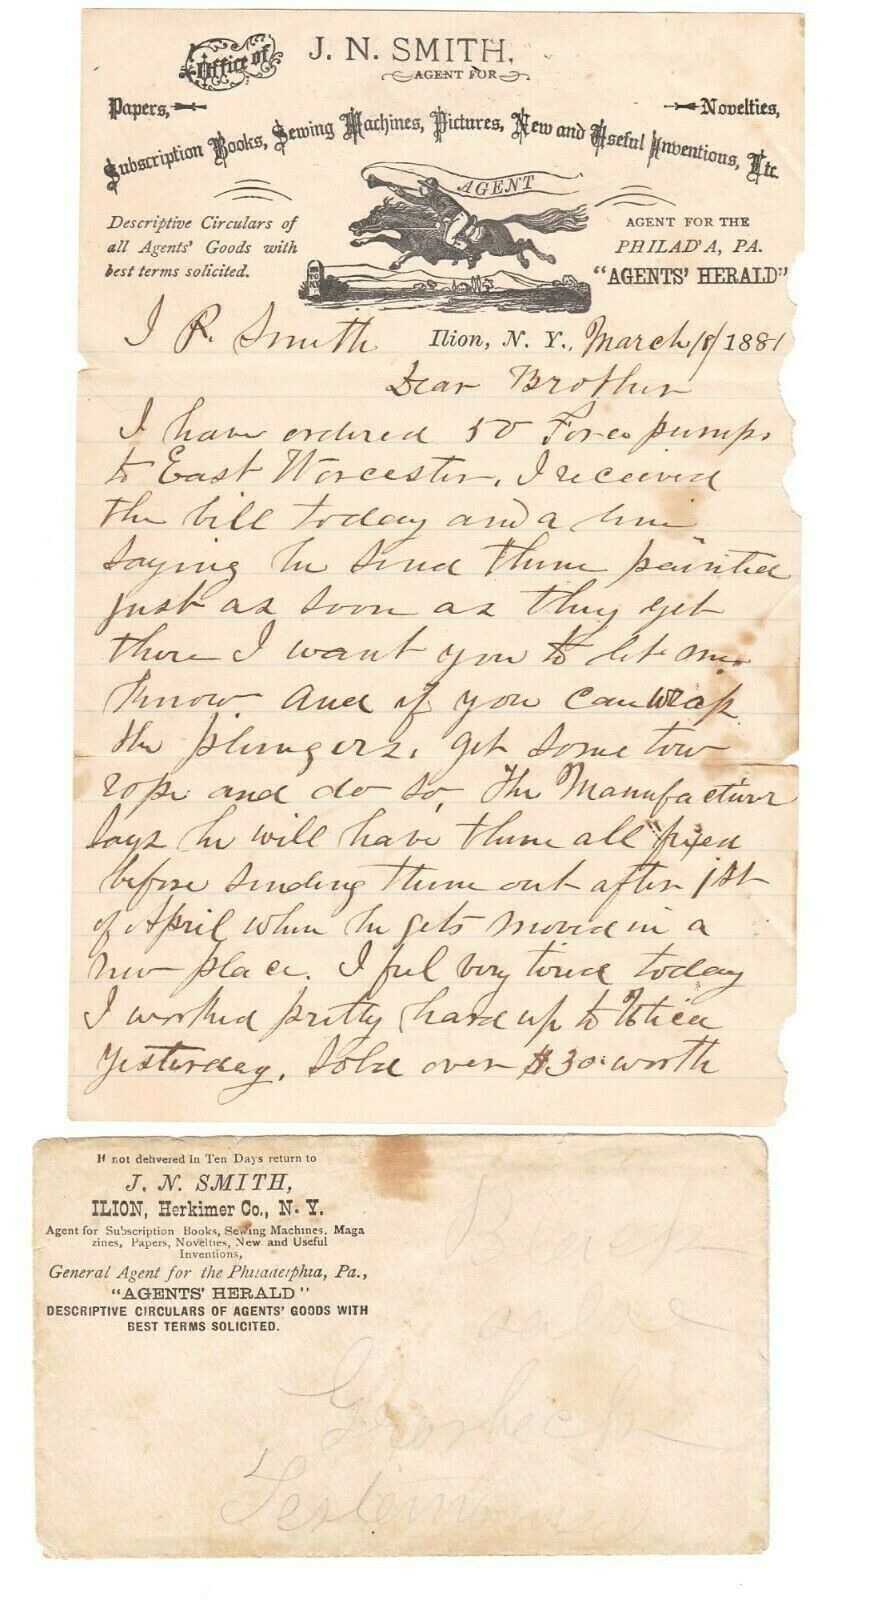 Office of J. N. SMITH,
AGENT FOR
Papers, Novelties,
Subscription Books, Sewing Machines, Pictures, New and Useful Inventions, Etc.
AGENT
Descriptive Circulars of
all Agents' Goods with
best terms solicited.
AGENT FOR THE
PHILAD'A, PA.
"AGENTS' HERALD"
J R. Smith Ilion, N. Y., March 18/ 1881
Dear Brother
I have ordered 50 Force pumps
to East Worcester, I received
the bill today and a line
saying he send them painted
just as soon as they get
there I want you to let me
know. And if you can wrap
the plungers, get some tow
rope and do so, The Manufacturer
says he will have them all fixed
before sending them out after 1st
of April, when he gets moved in a
new place. I feel very tired today
I worked pretty hard up to Utica
Yesterday, Sold over $30. worth
If not delivered in Ten Days return to
J. N. SMITH,
ILION, Herkimer Co., N. Y.
Agent for Subscription Books, Sewing Machines, Maga
zines, Papers, Novelties, New and Useful
Inventions,
General Agent for the Philadelphia, Pa.,
"AGENTS' HERALD"
DESCRIPTIVE CIRCULARS OF AGENTS' GOODS WITH
BEST TERMS SOLICITED.
Grosbeck